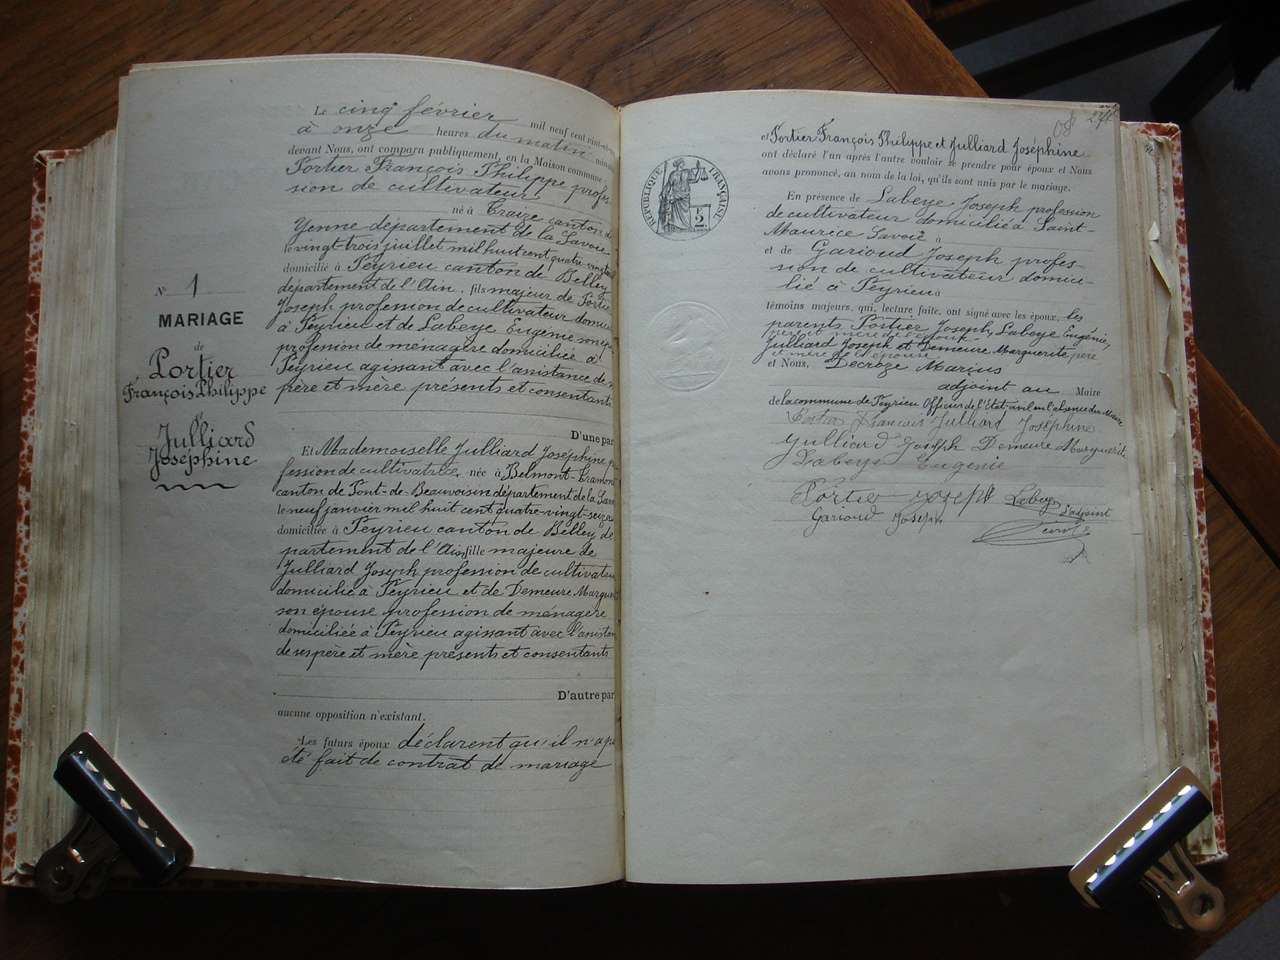 N° 1
MARIAGE
de
Portier
François Philippe
et
Julliard
Joséphine
Le cinq février mil neuf cent vingt
à onze heures du matin
devant Nous, ont comparu publiquement, en la Maison commune
Portier François Philippe profes
sion de cultivateur
né à Traize canton de
Yenne département de la Savoie
le vingt trois juillet mil huit cent quatre vingt
domicilié à Peyrieu canton de Belley
département de l'Ain, fils majeur de Portier
Joseph profession de cultivateur domici
à Peyrieu et de Labeye Eugénie son ép
profession de ménagère domiciliée à
Peyrieu agissant avec l'assistance de
père et mère présents et consentants
D'une par
Et Mademoiselle Julliard Joséphine p
fession de cultivatrice, née à Belmont-Tramon
canton de Pont-de-Beauvoisin département de la Sav
le neuf janvier mil huit cent quatre-vingt-seize
domiciliée à Peyrieu canton de Belley dé
partement de l'Ain fille majeure de
Julliard Joseph profession de cultivateu
domicilié à Peyrieu et de Demeure Margue
son épouse profession de ménagère
domiciliée à Peyrieu agissant avec l'assistan
de ses père et mère présents et consentants
D'autre par
aucune opposition n'existant.
Les futurs époux déclarent qu'il n'a pa
été fait de contrat de mariage
et Portier François Philippe et Julliard Joséphine
ont déclaré l'un après l'autre vouloir se prendre pour époux et Nous
avons prononcé, au nom de la loi, qu'ils sont unis par le mariage.
RÉPUBLIQUE FRANÇAISE
2
En présence de Labeye Joseph profession
de cultivateur domicilié à Saint-
Maurice Savoie
et de Garioud Joseph profes-
sion de cultivateur domici-
lié à Peyrieu
témoins majeurs, qui, lecture faite, ont signé avec les époux, les
parents Portier Joseph, Labeye Eugénie,
père et mère de l'époux
Julliard Joseph et Demeure Marguerite père
et mère de l'épouse
et Nous, Decroze Marius
adjoint au Maire
de la commune de Peyrieu Officier de l'État-civil en l'absence du Maire
Portier François Julliard Joséphine
Julliard Joseph Demeure Marguerite
Labeye Eugénie
Portier Joseph Labeye
L'adjoint
Garioud Joseph